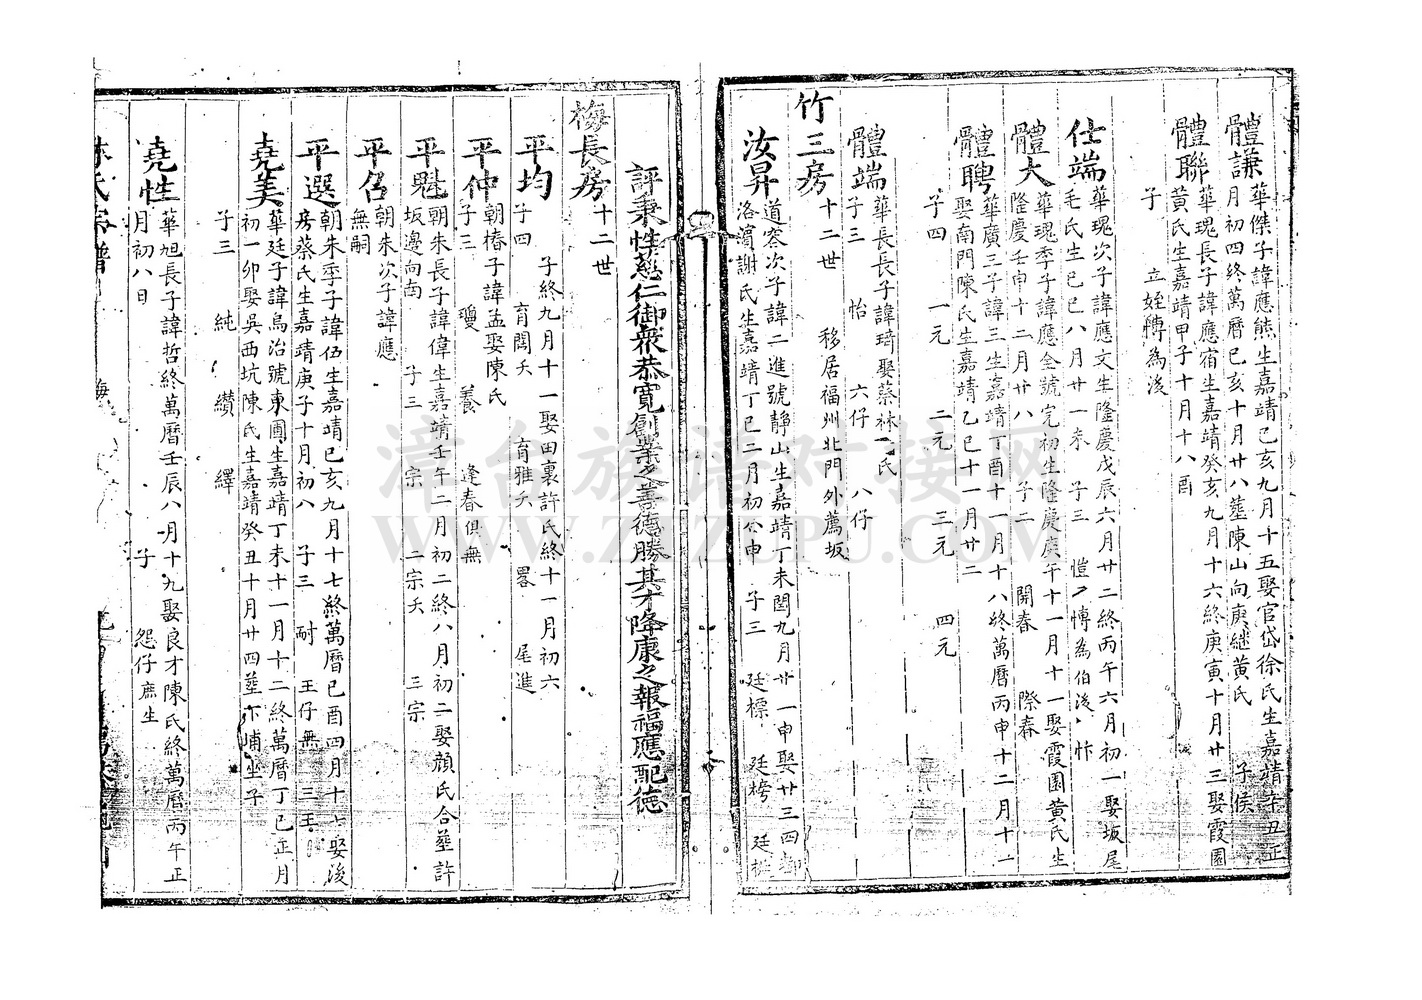 體謙
華傑子諱應熊生嘉靖己亥九月十五娶官岱徐氏生嘉靖辛丑正
月初四終萬曆己亥十月廿八塟陳山向庚繼黃氏 子侯
體聯
華瑰長子諱應宿生嘉靖癸亥九月十六終庚寅十月廿三娶霞園
黃氏生嘉靖甲子十月十八酉
子 立姪愽為後
仕端
華瑰次子諱應文生隆慶戊辰六月廿二終丙午六月初一娶坂尾
毛氏生己巳八月廿一未 子三 愷 愽為伯後 忭
體大
華瑰季子諱應全號完初生隆慶庚午十一月十一娶霞園黃氏生
隆慶壬申十二月廿八 子二 開春 際春
體聘
華廣三子諱三生嘉靖丁酉十一月十八終萬曆丙申十二月十一
娶南門陳氏生嘉靖乙巳十一月廿二
子四 一元 二元 三元 四元
體端
華長長子諱琦娶蔡林一氏
子三 怡 六仔 八仔
竹三房
十二世 移居福州北門外鳳坂
汝昇
道容次子諱二進號靜山生嘉靖丁未閏九月廿一申娶廿三四都
洛濱謝氏生嘉靖丁巳二月初六申 子三 廷標 廷榜 廷
評秉性慈仁御衆恭寬創業之善德勝其才降康之報福應配德
梅長房
十二世
平均
子終九月十一娶田裏許氏終十一月初六
子四 育闊夭 育雅夭 畧 尾進
平仲
朝椿子諱孟娶陳氏
子三 瓊 養 逢春俱無
平魁
朝朱長子諱偉生嘉靖壬午二月初二終八月初二娶顔氏合塟許
坂邊向南 子三 宗一 二宗夭 三宗
平召
朝朱次子諱應
無嗣
平選
朝朱季子諱伍生嘉靖己亥九月十七終萬曆己酉四月十七娶後
房蔡氏生嘉靖庚子十月初八 子三 耐 王仔無 三王
堯美
華廷子諱烏治號東圃生嘉靖丁未十一月十二終萬曆丁巳正月
初一卯娶吳西坑陳氏生嘉靖癸丑十月廿四塟下埔坐子
子三 純 纉 繹
堯性
華旭長子諱哲終萬曆壬辰八月十九娶良才陳氏終萬曆丙午正
月初八日 子 怨仔庶生
林氏宗譜
漳台族谱对接网
WWW.ZTZUPU.COM